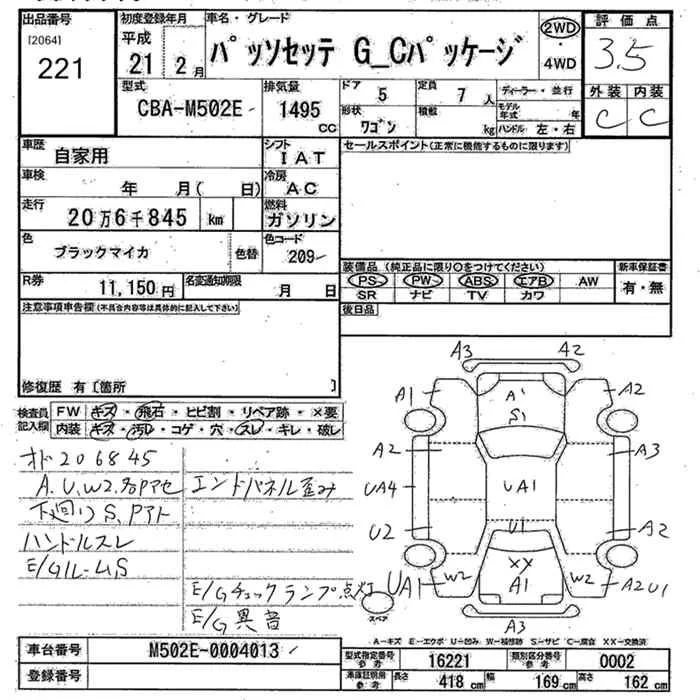 出品番号 初度登録年月 車名・グレード 2WD 評価点
[2064] 平成 パッソセッテ G_Cパッケージ ・ 3.5
221 21 2月 4WD
型式 排気量 ドア 5 定員 7人 ディーラー・並行 外装 内装
CBA-M502E 1495 cc 形状 ワゴン 積載 kg モデル年式 年 C C
ハンドル 左・右
車歴 自家用 シフト IAT セールスポイント(正常に機能するものに限ります)
車検 年 月( 日) 冷房 AC
走行 20万6千845 km 燃料 ガソリン
色 ブラックマイカ 色替 色コード 209
装備品 (純正品に限り○をつけてください) 新車保証書
R券 11,150円 名変通知期限 月 日 PS PW ABS エアB AW 有・無
SR ナビ TV カワ
注意事項申告欄(不具合内容等は具体的に記入して下さい) 後日品
修復歴 有〔箇所 〕
検査員記入欄 FW キズ・飛石・ヒビ割・リペア跡・×要
内装 キズ・汚レ・コゲ・穴・スレ・キレ・破レ
オド206845
A.U.W2.各Pアセ エンドパネル歪み
下廻りS.Pアト
ハンドルスレ
E/GルームS
E/Gチェックランプ点灯
E/G異音
A3 A2
A1 A1 A2
S1
A2 A3
UA4 UA1
U2 U1 A2
XX
UA1 W2 A1 W2 A2U1
スペア A3
A-キズ E-エクボ U-凹み W-補修跡 S-サビ C-腐食 XX-交換済
車台番号 M502E-0004013 型式指定番号 参考 16221 類別区分番号 参考 0002
登録番号 車庫証明用 参考 長さ 418cm 幅 169cm 高さ 162cm